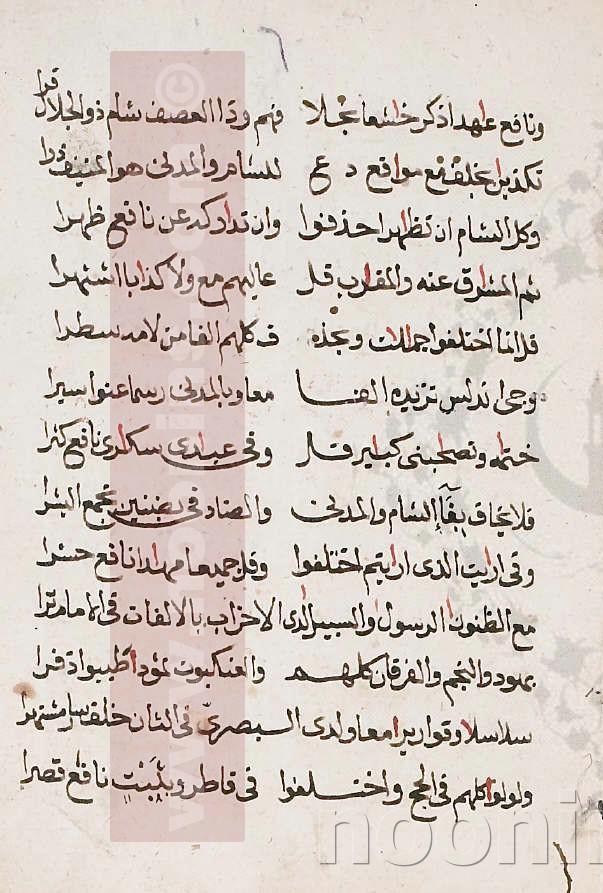 ونافع عهدا اذكر خاشعا بخلا فهم وذا العصف شام ذو الجلال قرا
تكذبان بخلف مع مواقع دع للشام والمدنى هو المنيف ذرا
وكل الشام ان تظاهرا حذفوا وان تداركه عن نافع ظهرا
ثم المشارق عنه والمغارب قل عاليهم مع ولا كذابا اشتهرا
قل انما اختلفوا جمالات وبحذه ف كلهم الفا من لامه سطرا
وجئ اندلس تزيده الفا معا وبالمدنى رسما عنوا سيرا
ختامه وتصاحبنى كباير قل وفى عبادى سكارى نافع كثرا
فلا يخاف بفاء الشام والمدنى والضاد فى بضنين تجمع البشرا
وفى ارايت الذى ارايتم اختلفوا وقل جميعا مهادا نافع حشرا
مع الظنون الرسول والسبيل لدى الاحزاب بالالفات فى الامام ترا
بهود والنجم والفرقان كلهم والعنكبوت ثمودا طيبوا ذفرا
سلاسلا وقواريرا معا ولدى البصرى فى الثان خلف سار مشتهرا
ولولوا كلهم فى الحج واختلفوا فى فاطر وبثبت نافع قصرا
nooni